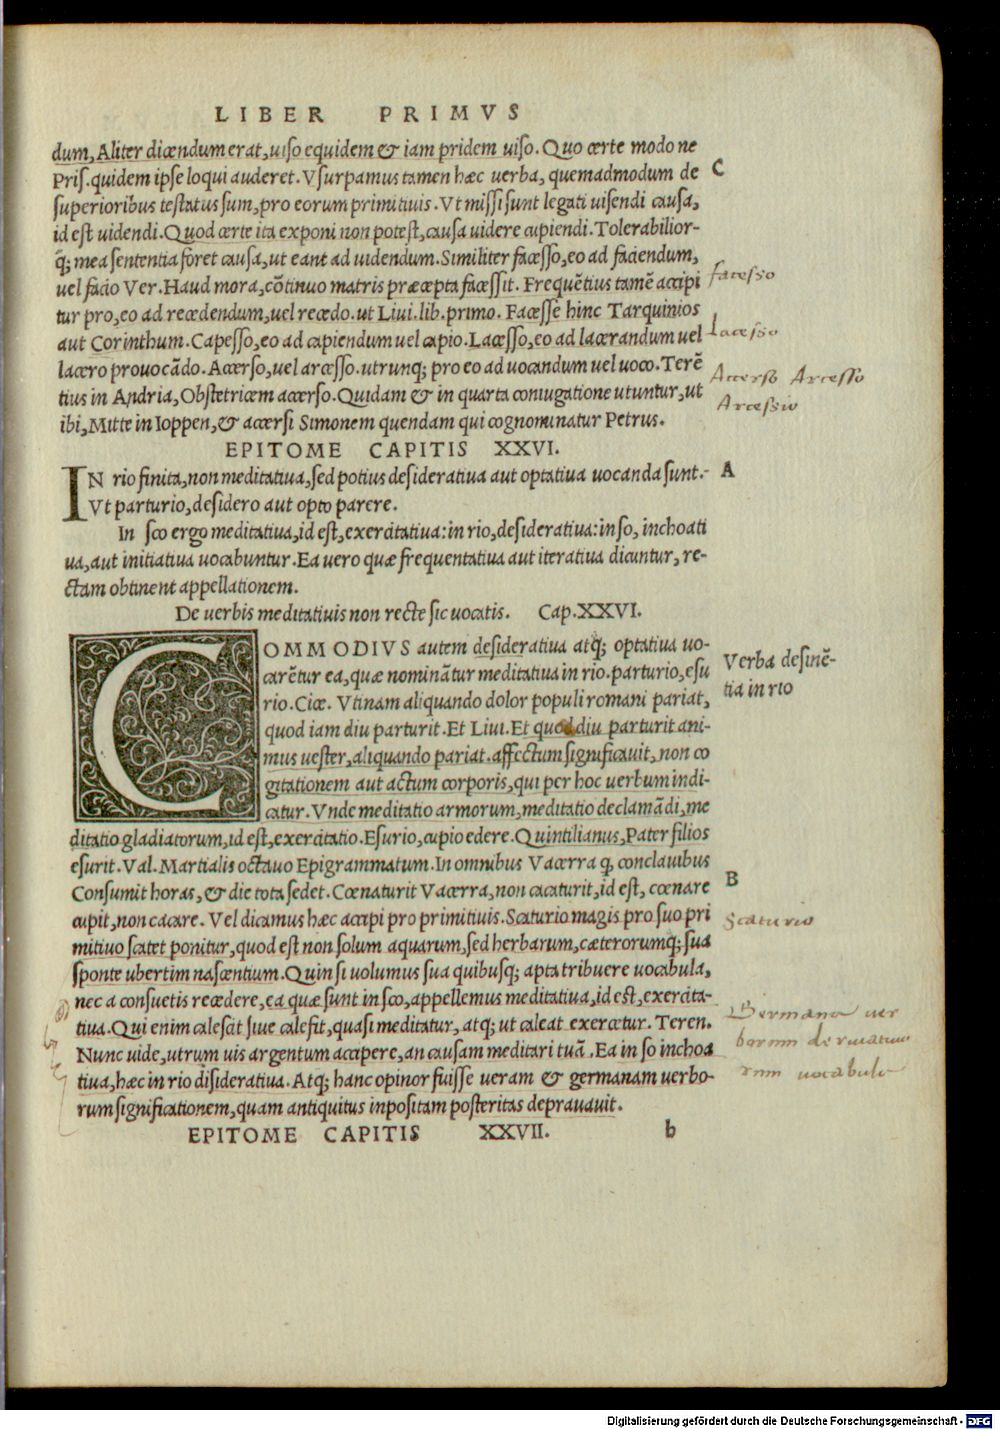 LIBER PRIMVS
dum, Aliter dicendum erat, uiso equidem & iam pridem uiso. Quo certe modo ne
Pris. quidem ipse loqui auderet. Vsurpamus tamen hæc uerba, quemadmodum de
C
superioribus testatus sum, pro eorum primitiuis. Vt missi sunt legati uisendi causa,
id est uidendi. Quod certe ita exponi non potest, causa uidere cupiendi. Tolerabilior-
q̃; mea sententia foret causa, ut eant ad uidendum. Similiter facesso, eo ad faciendum,
facesso
uel facio Ver. Haud mora, cõtinuo matris præcepta facessit. Frequẽtius tamẽ accipi
tur pro, eo ad recedendum, uel recedo. ut Liui. lib. primo. Facesse hinc Tarquinios
aut Corinthum. Capesso, eo ad capiendum uel capio. Lacesso, eo ad lacerandum uel
Lacesso
lacero prouocãdo. Accerso, uel arcesso. utrunq; pro eo ad uocandum uel uoco. Terẽ
Accerso Arcesso
tius in Andria, Obstetricem accerso. Quidam & in quarta coniugatione utuntur, ut
Arcessio
ibi, Mitte in Ioppen, & accersi Simonem quendam qui cognominatur Petrus.
EPITOME CAPITIS XXVI.
IN rio finita, non meditatiua, sed potius desideratiua aut optatiua uocanda sunt.-
A
Vt parturio, desidero aut opto parere.
In sco ergo meditatiua, id est, exercitatiua: in rio, desideratiua: in so, inchoati
ua, aut initiatiua uocabuntur. Ea uero quæ frequentatiua aut iteratiua dicuntur, re-
ctam obtinent appellationem.
De uerbis meditatiuis non recte sic uocatis. Cap. XXVI.
COMMODIVS autem desideratiua atq; optatiua uo-
carẽtur ea, quæ nominãtur meditatiua in rio. parturio, esu
Verba desinẽ-
tia in rio
rio. Cic. Vtinam aliquando dolor populi romani pariat,
quod iam diu parturit. Et Liui. Et quod diu parturit ani-
mus uester, aliquando pariat. affectum significauit, non co
gitationem aut actum corporis, qui per hoc uerbum indi-
catur. Vnde meditatio armorum, meditatio declamãdi, me
ditatio gladiatorum, id est, exercitatio. Esurio, cupio edere. Quintilianus, Pater filios
esurit. Val. Martialis octauo Epigrammatum. In omnibus Vacerra q̃ conclauibus
Consumit horas, & die tota sedet. Cœnaturit Vacerra, non cacaturit, id est, cœnare
B
cupit, non cacare. Vel dicamus hæc accipi pro primitiuis. Scaturio magis pro suo pri
Scaturio
mitiuo scatet ponitur, quod est non solum aquarum, sed herbarum, cæterorumq; sua
sponte ubertim nascentium. Quin si uolumus sua quibusq; apta tribuere uocabula,
nec a consuetis recedere, ea quæ sunt in sco, appellemus meditatiua, id est, exercita-
tiua. Qui enim calescit siue calefit, quasi meditatur, atq; ut caleat exercetur. Teren.
Germana uer
Nunc uide, utrum uis argentum accipere, an causam meditari tuã. Ea in so inchoa
borum deriuatiuo
tiua, hæc in rio disideratiua. Atq; hanc opinor fuisse ueram & germanam uerbo-
rum uocabula
rum significationem, quam antiquitus inpositam posteritas deprauauit.
EPITOME CAPITIS XXVII. b
Digitalisierung gefördert durch die Deutsche Forschungsgemeinschaft - DFG